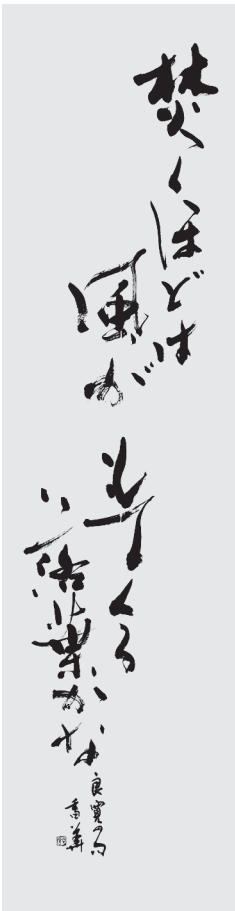 焚くほどは
風が
もてくる
落葉かな
良寛の句